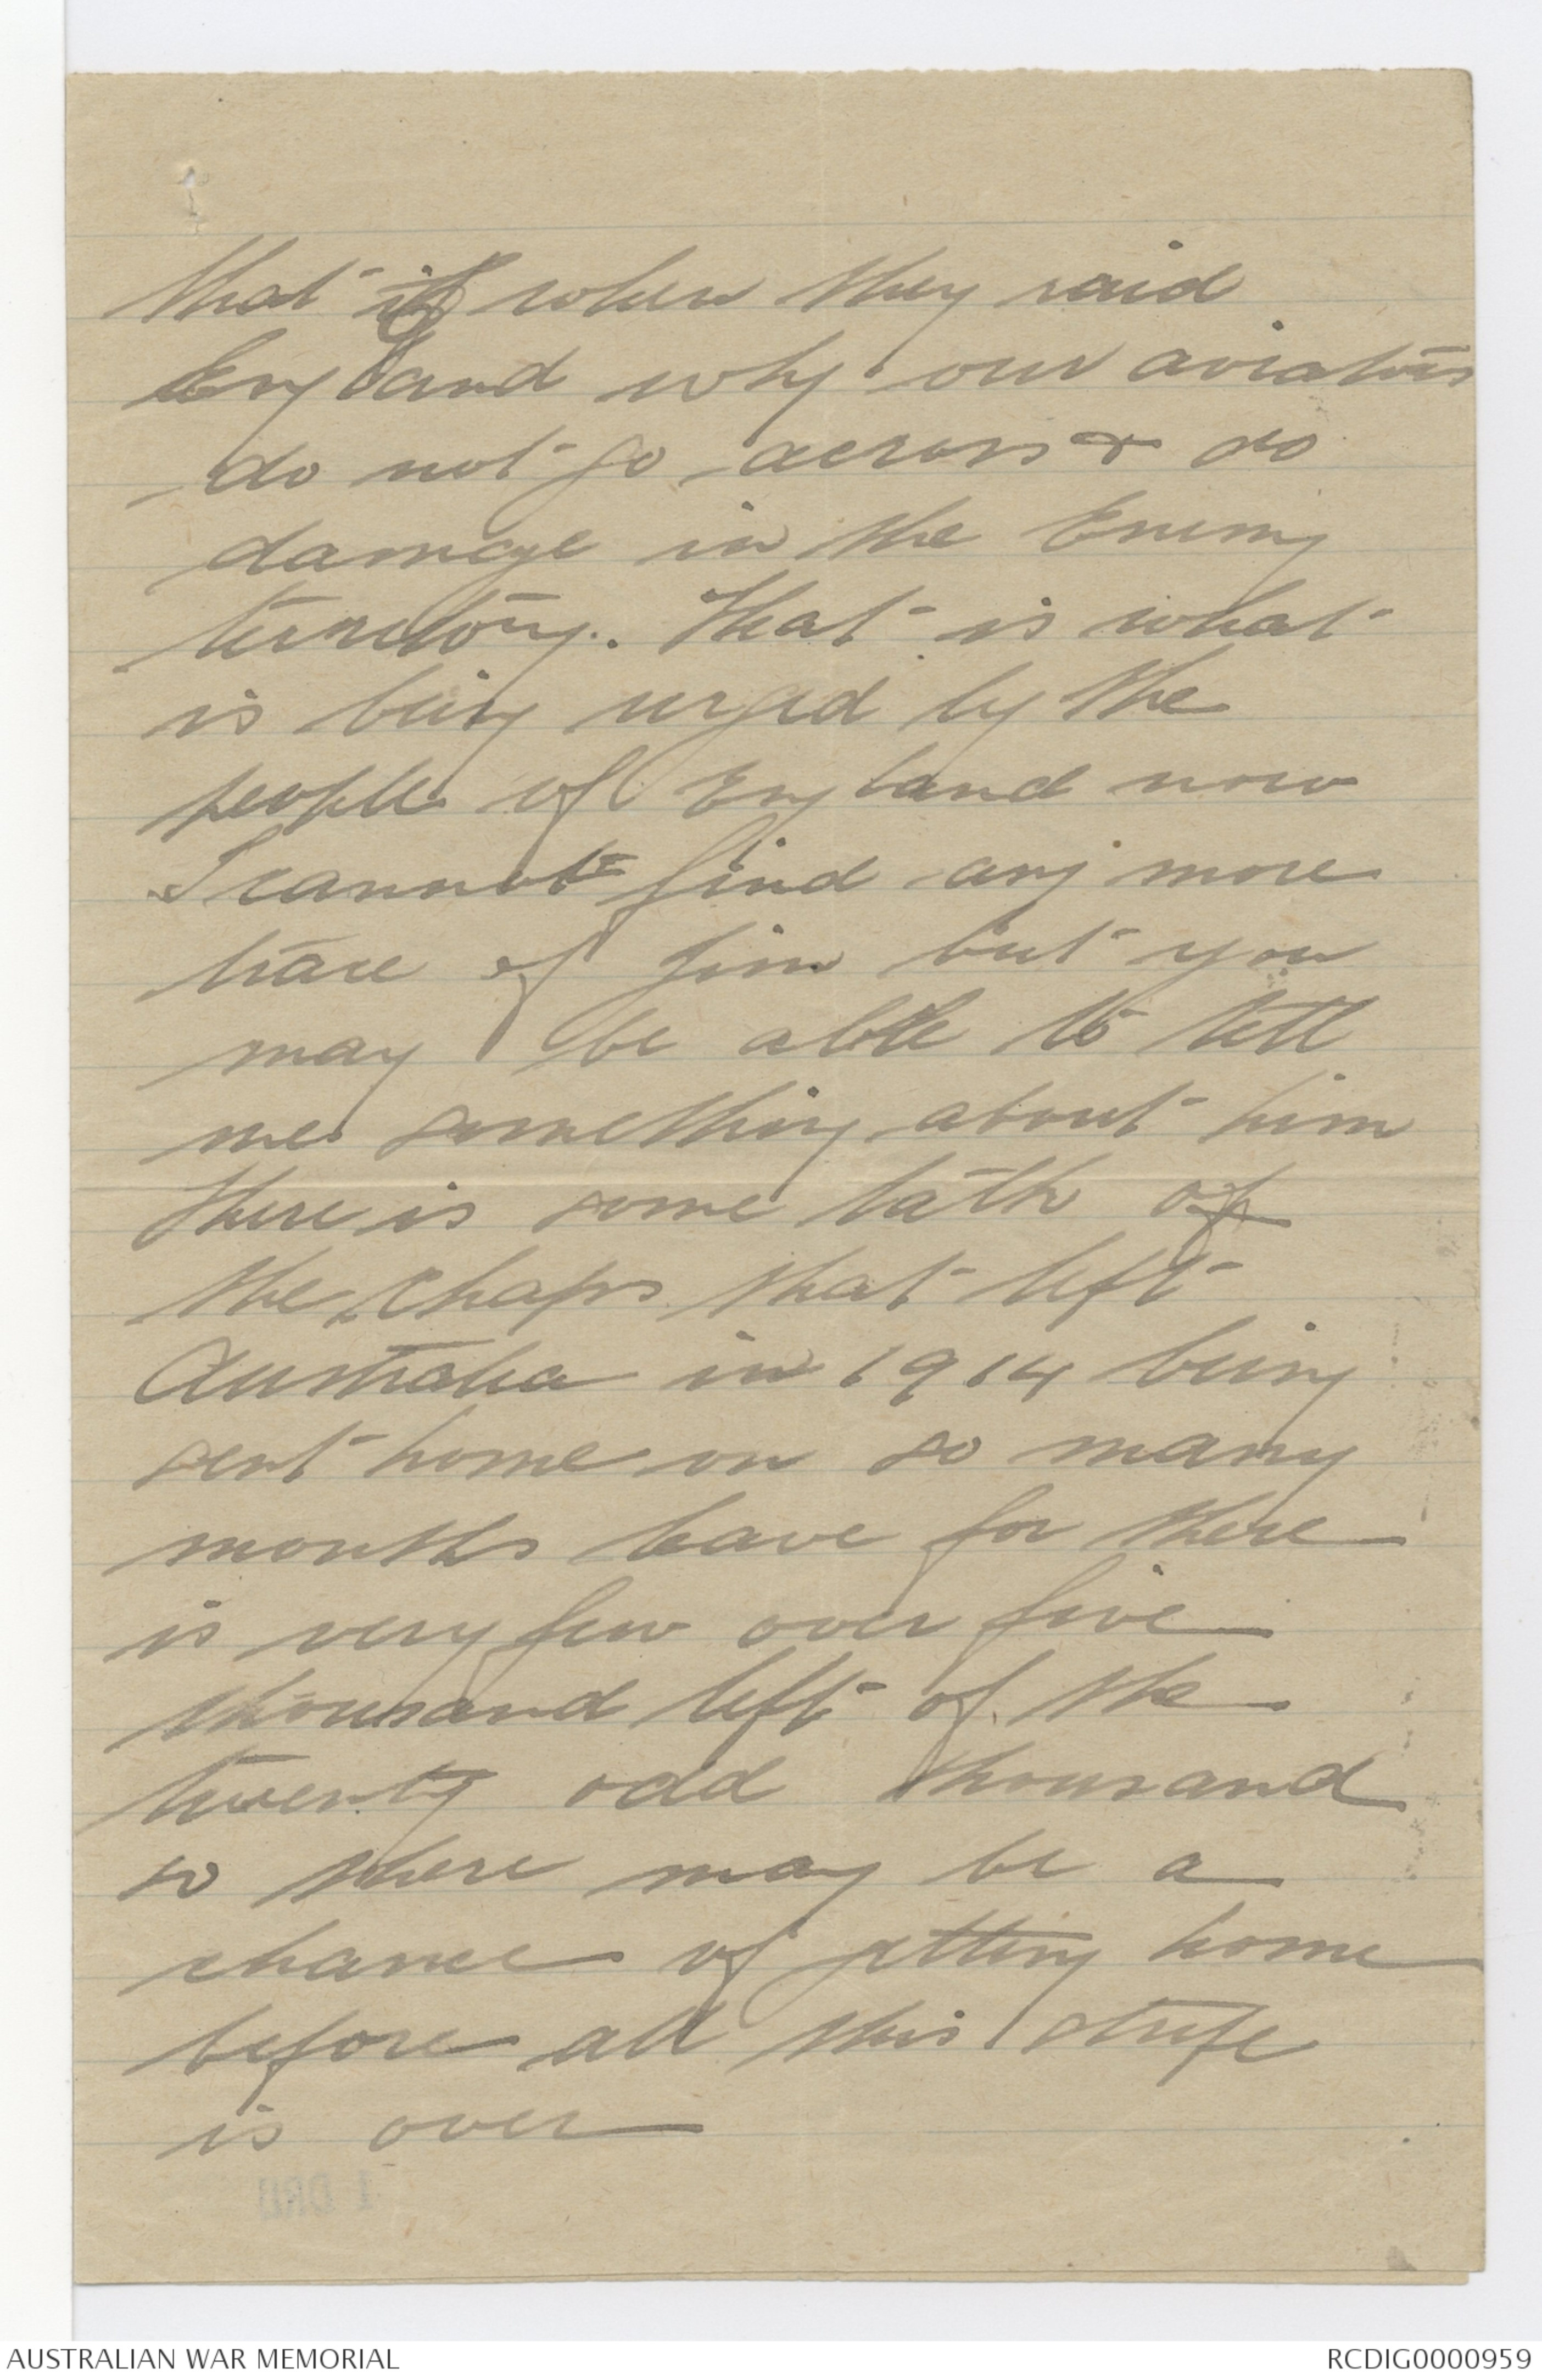 that if when they raid
England why our aviators
do not go across & do
damage in the Enemy
territory. That is what
is being urged by the
people of England now
I cannot find any more
trace of Jim but you
may be able to tell
me something about him
There is some talk of
the chaps that left
Australia in 1914 being
sent home on so many
months leave for there
is very few over five
thousand left of the
twenty odd thousand
so there may be a
chance of getting home
before all this strife
is over
1 DRL
AUSTRALIAN WAR MEMORIAL
RCDIG0000959